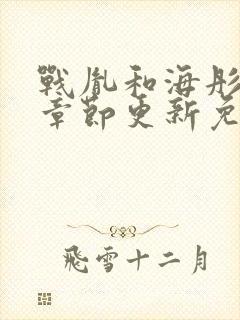 戰胤和海彤
章節更新免
飛雪十二月